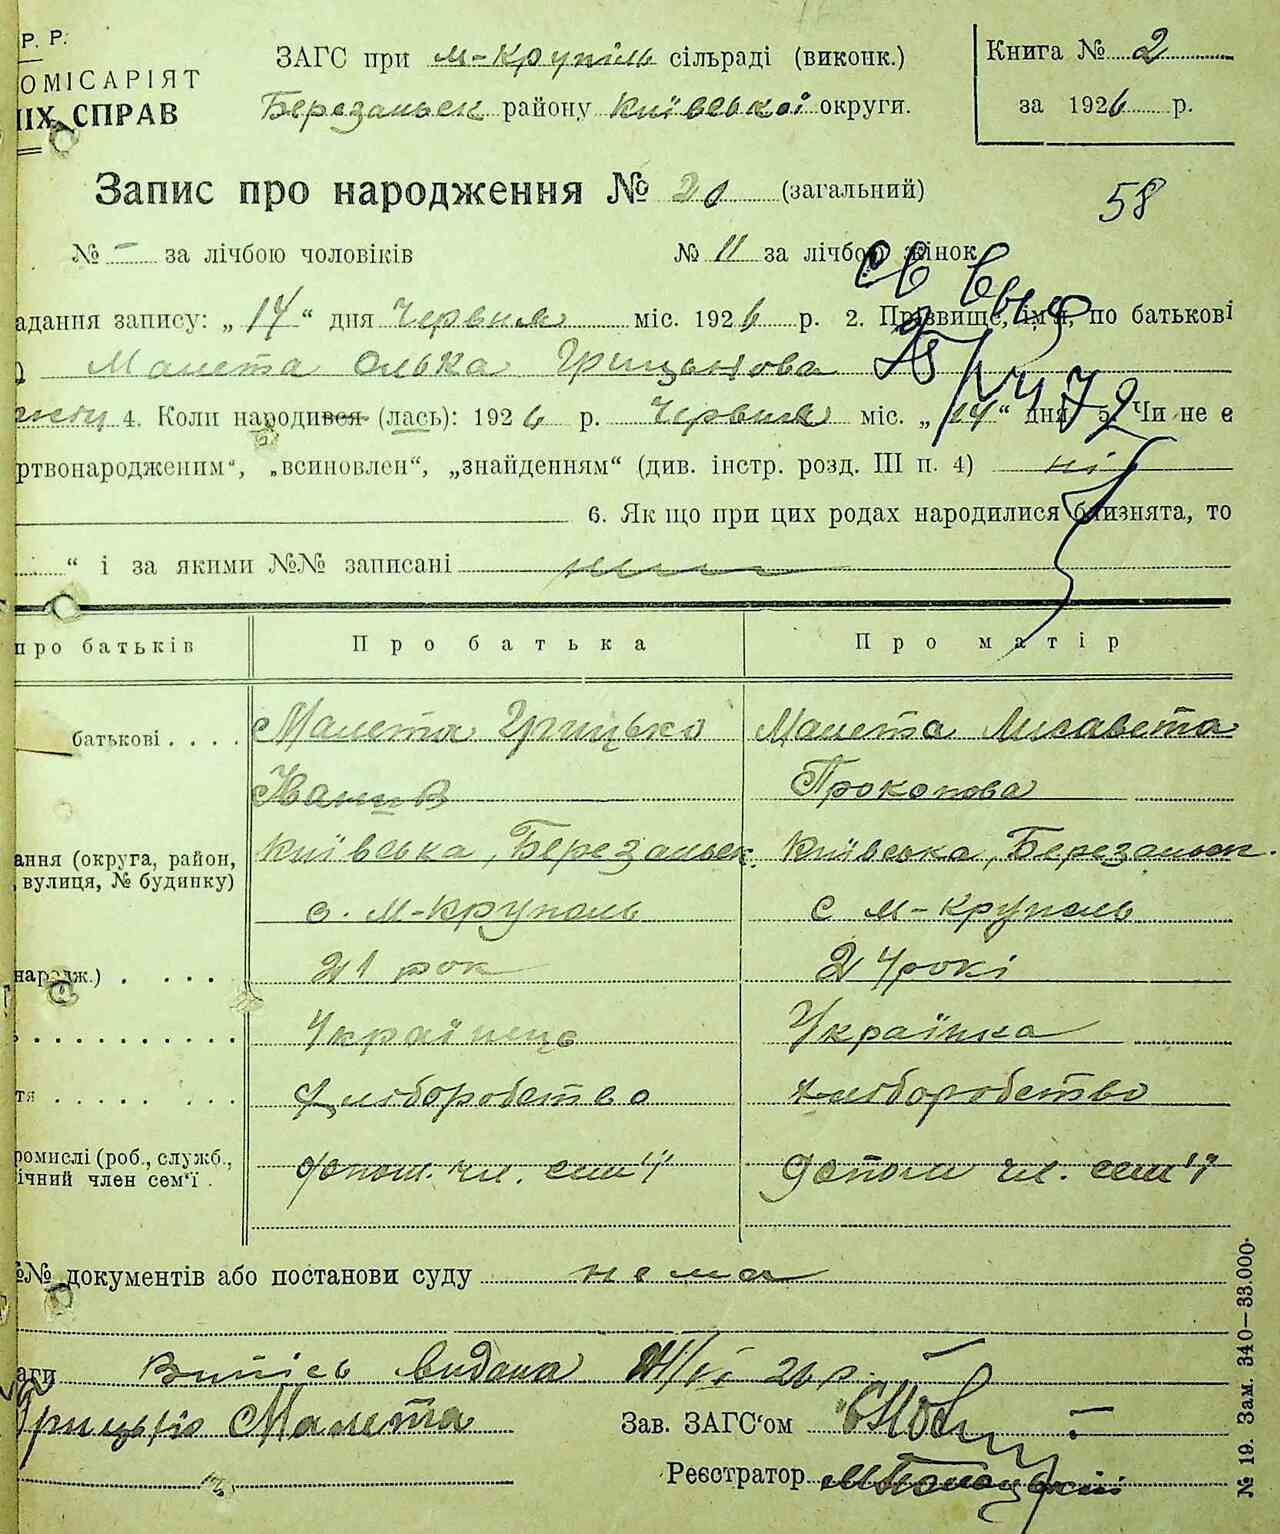 Р. Р.
ОМІСАРІЯТ
ІХ СПРАВ
ЗАГС при м-Крупіль сільраді (виконк.)
Березанськ району Київської округи.
Книга № 2
за 1926 р.
Запис про народження № 20 (загальний)
58
№ – за лічбою чоловіків № 11 за лічбою жінок
адання запису: „14“ дня Червня міс. 1926 р. 2. Прізвище, ім'я, по батькові
Малета Олька Грицькова
4. Коли народився (лась): 1926 р. Червня міс. „14“ дня 5. Чи не є
ртвонародженим“, „всиновлен“, „знайденням“ (див. інстр. розд. III п. 4) ні
6. Якщо при цих родах народилися близнята, то
“ і за якими №№ записані
про батьків Про батька Про матір
батькові . . . . Малета Грицько Малета Лисавета
Іванів Прокопова
ання (округа, район, Київська, Березанськ. Київська, Березанськ.
, вулиця, № будинку)
с. м-Круполь с м-Круполь
народж.) . . . . 21 рок 24 рокі
Українець Українка
тя . . . . . . . . Хлюборобство Хлюборобство
ромислі (роб., служб., допом. чл. сем'ї допом чл. сем'ї
ічний член сем'ї .
№№ документів або постанови суду нема
аги Випісь видана 14/VI 26 р.
Грицько Малета Зав. ЗАГС'ом
Реєстратор
№ 19. Зам. 340—33.000.